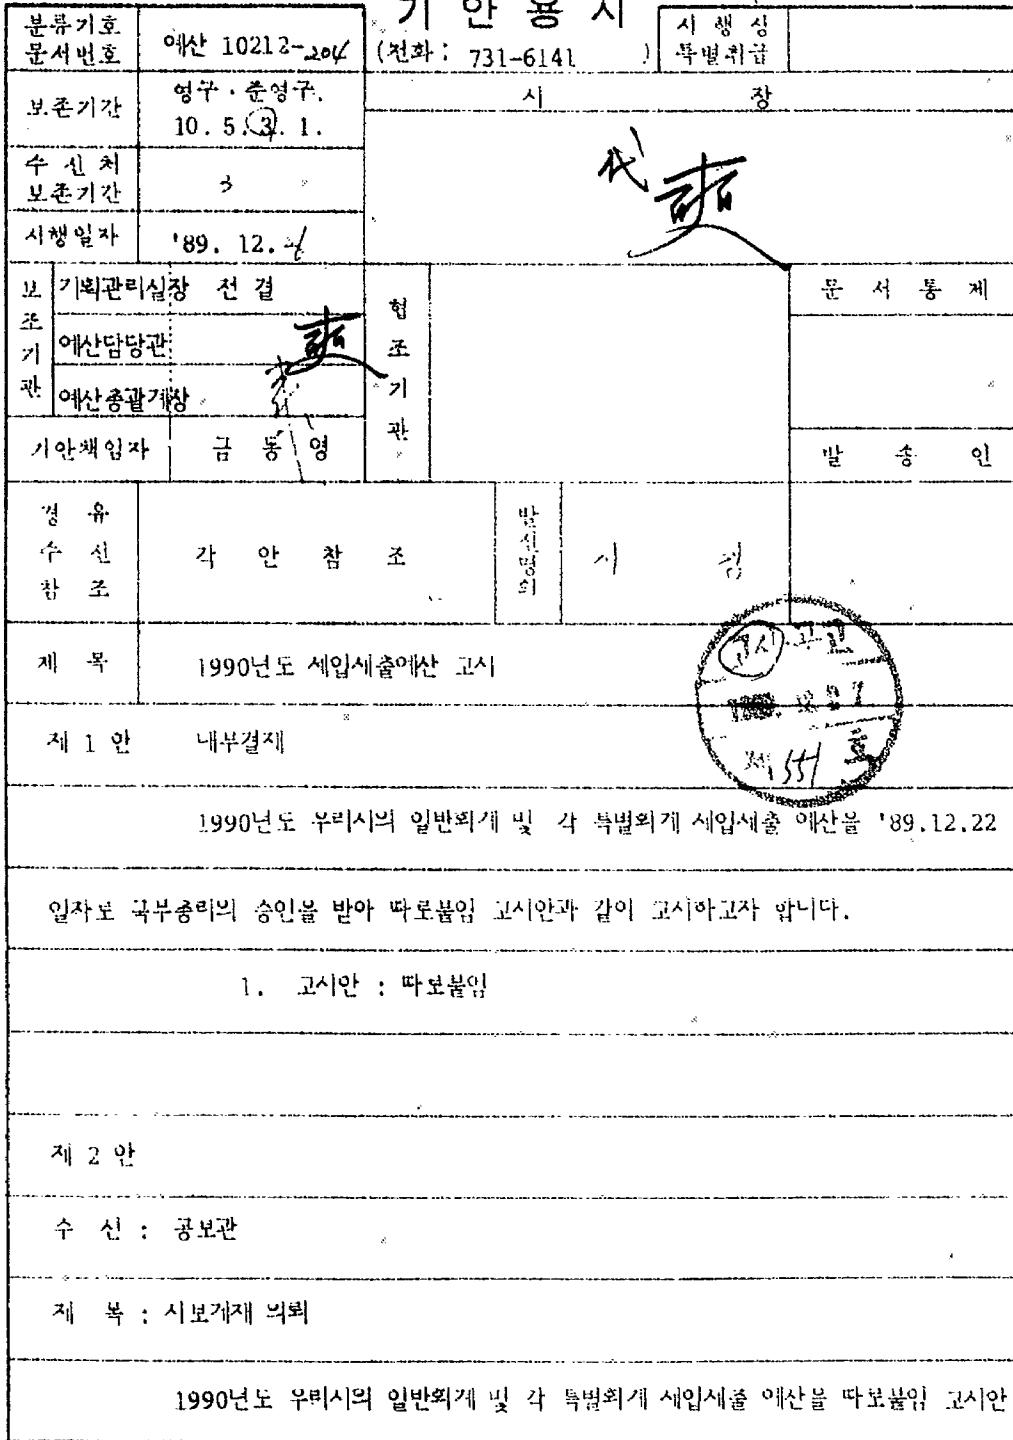 기 안 용 지
분류기호
문서번호
예산 10212-204
(전화 : 731-6141 )
시 행 상
특별취급
보존기간
영구 · 준영구.
10. 5. 3. 1.
시 장
수 신 처
보존기간
3
代
시행일자
'89. 12.
보조기관
기획관리실장 전 결
예산담당관
예산총괄계장
협조기관
문 서 통 제
기안책임자
금 동 영
발 송 인
경 유
수 신
참 조
각 안 참 조
발신명의
시 장
제 목
1990년도 세입세출예산 고시
고시.공고
제 551 호
제 1 안 내부결재
1990년도 우리시의 일반회계 및 각 특별회계 세입세출 예산을 '89.12.22
일자로 국무총리의 승인을 받아 따로붙임 고시안과 같이 고시하고자 합니다.
1. 고시안 : 따로붙임
제 2 안
수 신 : 공보관
제 목 : 시보게재 의뢰
1990년도 우리시의 일반회계 및 각 특별회계 세입세출 예산을 따로붙임 고시안